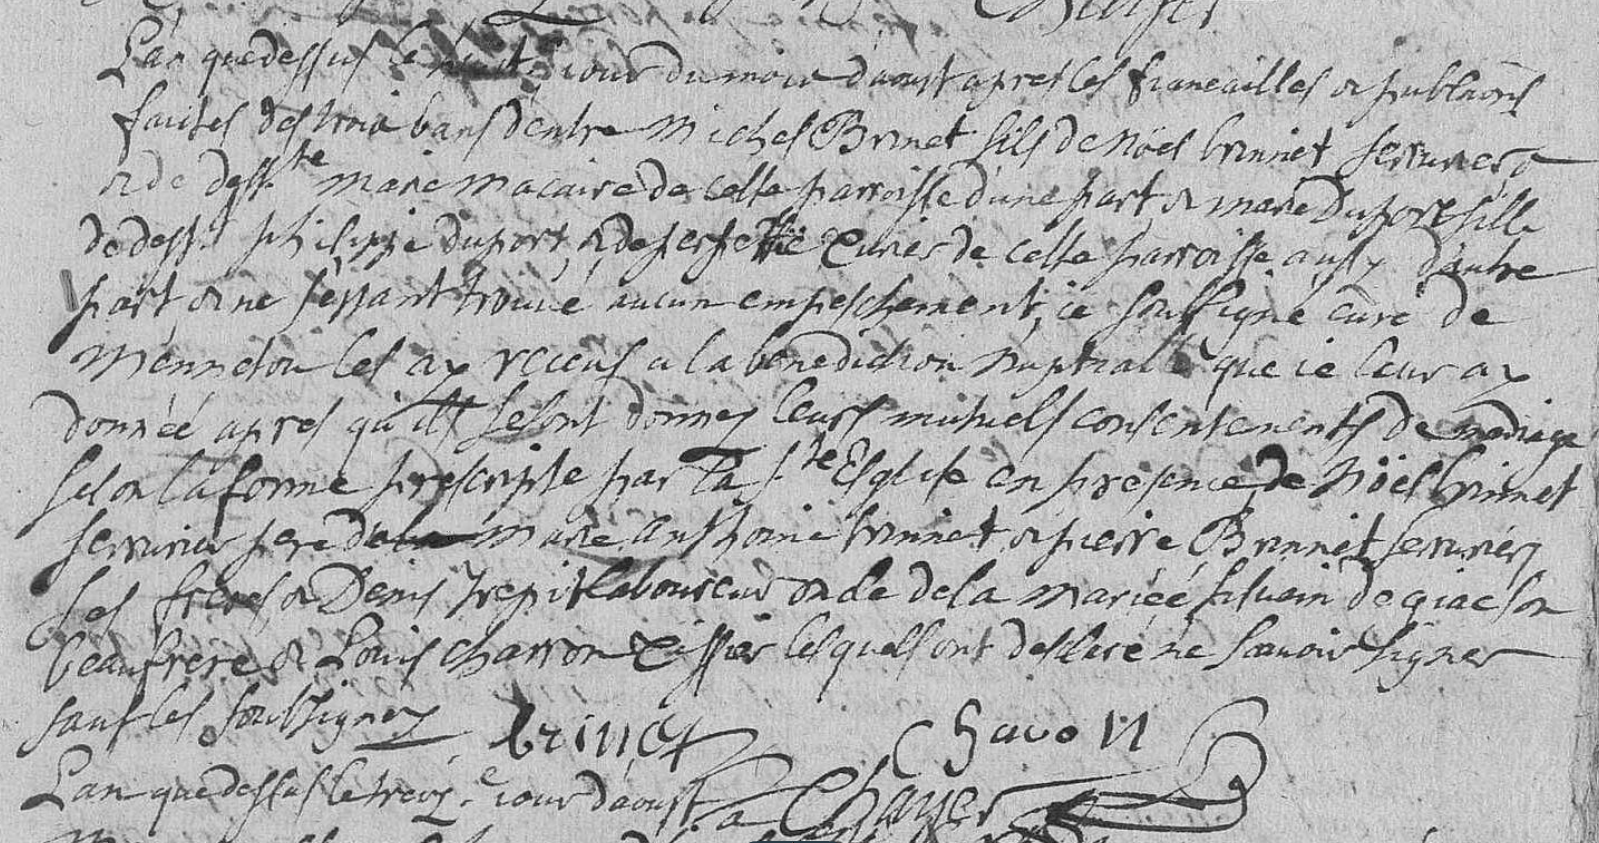 L'an que dessus le huit jour du mois d'aoust apres les fiancailles & publaōns
faites des trois bans d'entre Michel Brinet fils de Noel brinnet serrurier
& de deff.te marie macaire de cette parroisse d'une part & marie Duport fille
de deff. philippe duport & de perpette de cette parroisse aussy d'autre
part & ne s'estant trouvé aucun empeschement, ie soussigné curé de
Mennetou les ay receus a la benediction nuptiale que ie leur ay
donnéé apres qu'ilz se sont donnez leurs mutuels consentements de mariage
selon la forme prescripte par la s.te Esglise en presence de Noël brinnet
serrurier pere du marié anthoine brinnet & pierre Brinnet serruriers
ses freres & Denis trepit laboureur oncle de la mariéé silvain de giac son
beaufrere & Louis charron lesquels ont desclaré ne scavoir signer
sauf les soubsignez brinet Charon
L'an que dessus le treiz.e iour d'aoust Chayer